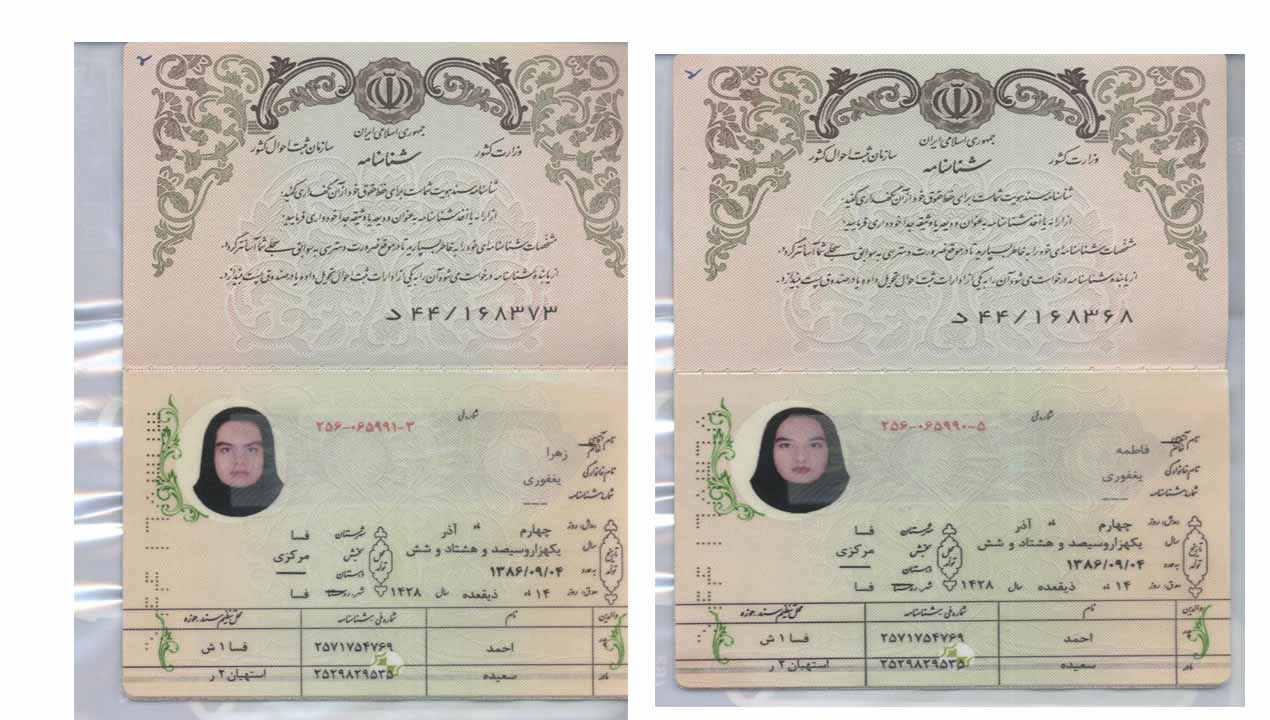 ۲
جمهوری اسلامی ایران
وزارت کشور
سازمان ثبت احوال کشور
شناسنامه
شناسنامه سند هویت شماست برای حفظ حقوق خود از آن نگهداری کنید.
از ارائه یا اخذ شناسنامه به عنوان ودیعه یا وثیقه جدا خودداری فرمایید.
مشخصات شناسنامه‌ای خود را به خاطر بسپارید تا در موقع ضرورت دسترسی به سوابق سجلی شما آسانتر گردد.
از یابنده شناسنامه درخواست می شود آن را به یکی از ادارات ثبت احوال تحویل داده یا در صندوق پست بیندازد.
د ۴۴/۱۶۸۳۷۳
شماره ملی
۲۵۶-۰۶۵۹۹۱-۳
نام
خانم زهرا
نام خانوادگی یغفوری
شماره شناسنامه ---
روز چهارم ماه آذر
سال یکهزاروسیصد و هشتاد و شش
به عدد ۱۳۸۶/۰۹/۰۴
روز ۱۴ ماه ذیقعده سال ۱۴۲۸
تاریخ تولد
محل تولد
شهرستان فسا
بخش مرکزی
دهستان ---
شهر فسا
والدین نام شماره ملی-شناسنامه محل تنظیم سند-حوزه
پدر احمد ۲۵۷۱۷۵۴۷۶۹ فسا ۱ ش
مادر سعیده ۲۵۲۹۸۲۹۵۳۵ استهبان ۲ ر
۲
جمهوری اسلامی ایران
وزارت کشور
سازمان ثبت احوال کشور
شناسنامه
شناسنامه سند هویت شماست برای حفظ حقوق خود از آن نگهداری کنید.
از ارائه یا اخذ شناسنامه به عنوان ودیعه یا وثیقه جدا خودداری فرمایید.
مشخصات شناسنامه‌ای خود را به خاطر بسپارید تا در موقع ضرورت دسترسی به سوابق سجلی شما آسانتر گردد.
از یابنده شناسنامه درخواست می شود آن را به یکی از ادارات ثبت احوال تحویل داده یا در صندوق پست بیندازد.
د ۴۴/۱۶۸۳۶۸
شماره ملی
۲۵۶-۰۶۵۹۹۰-۵
نام
خانم فاطمه
نام خانوادگی یغفوری
شماره شناسنامه ---
روز چهارم ماه آذر
سال یکهزاروسیصد و هشتاد و شش
به عدد ۱۳۸۶/۰۹/۰۴
روز ۱۴ ماه ذیقعده سال ۱۴۲۸
تاریخ تولد
محل تولد
شهرستان فسا
بخش مرکزی
دهستان ---
شهر فسا
والدین نام شماره ملی-شناسنامه محل تنظیم سند-حوزه
پدر احمد ۲۵۷۱۷۵۴۷۶۹ فسا ۱ ش
مادر سعیده ۲۵۲۹۸۲۹۵۳۵ استهبان ۲ ر